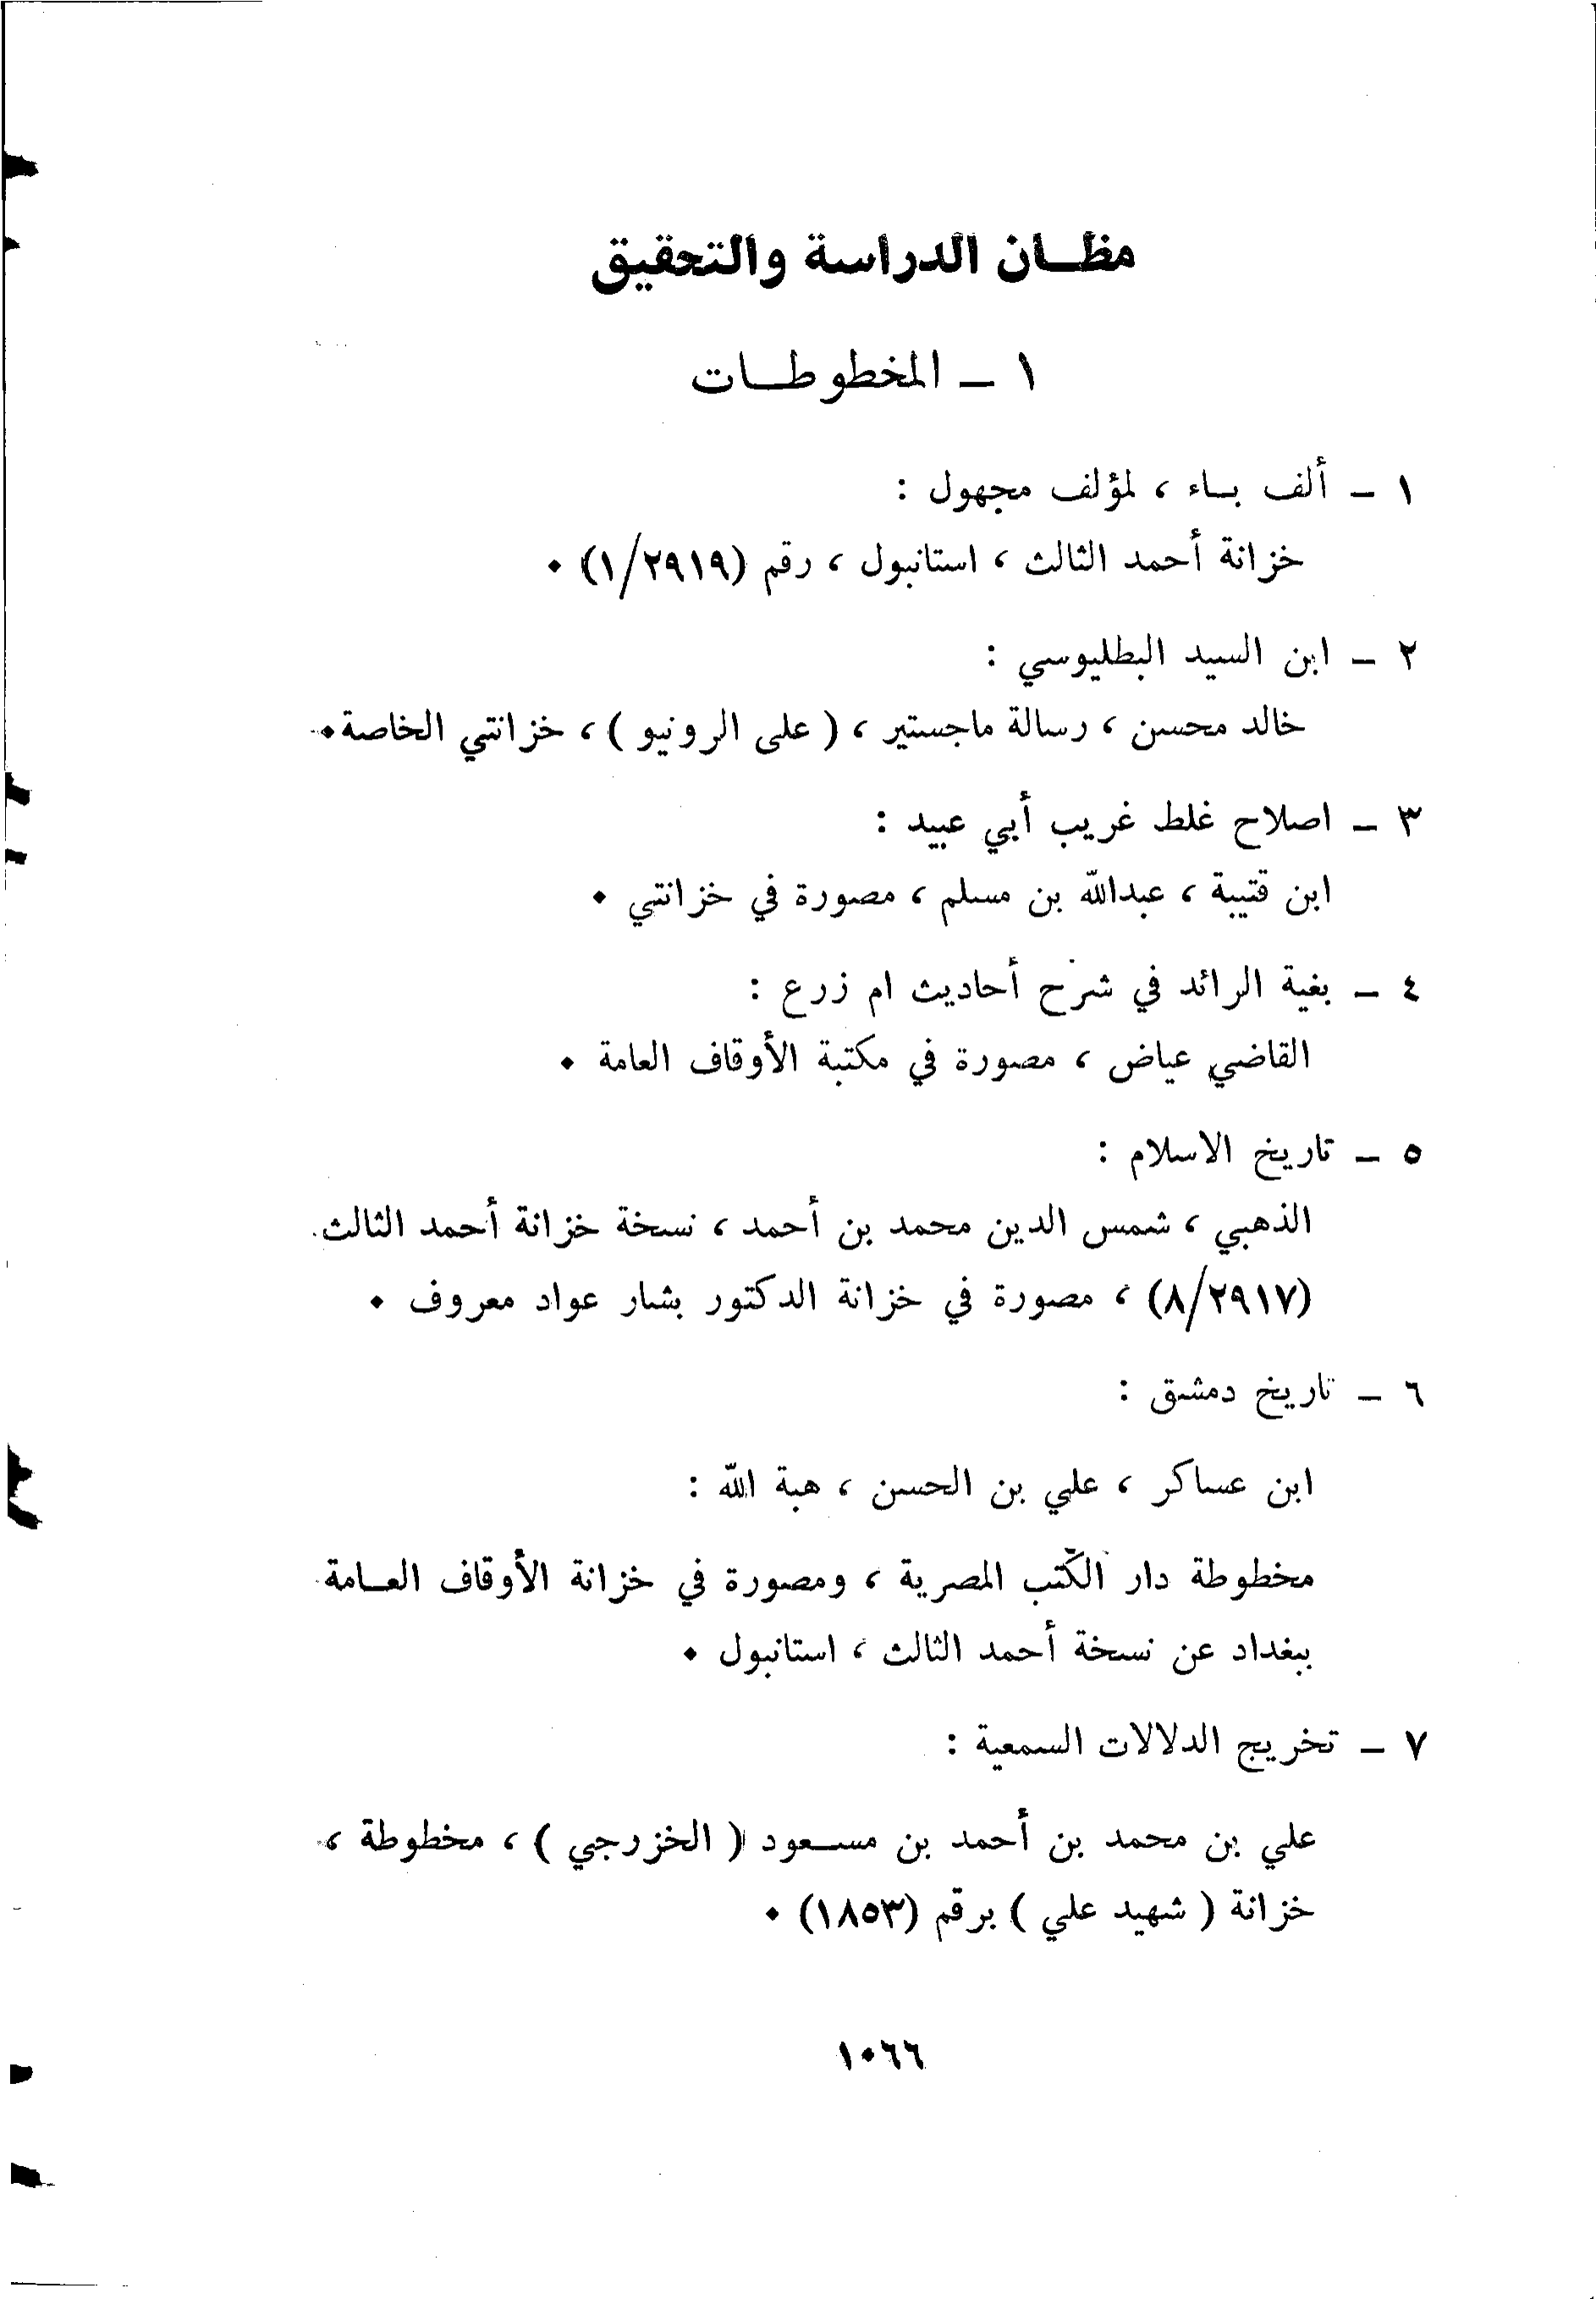 مظــان الدراسة والتحقيق
١ ــ المخطوطــات
١ ــ ألف بــاء ، لمؤلف مجهول :
خزانة أحمد الثالث ، استانبول ، رقم (١/٢٩١٩) .
٢ ــ ابن السيد البطليوسي :
خالد محسن ، رسالة ماجستير ، ( على الرونيو ) ، خزانتي الخاصة .
٣ ــ اصلاح غلط غريب أبي عبيد :
ابن قتيبة ، عبدالله بن مسلم ، مصورة في خزانتي .
٤ ــ بغية الرائد في شرح أحاديث ام زرع :
القاضي عياض ، مصورة في مكتبة الأوقاف العامة .
٥ ــ تاريخ الاسلام :
الذهبي ، شمس الدين محمد بن أحمد ، نسخة خزانة أحمد الثالث
(٨/٢٩١٧) ، مصورة في خزانة الدكتور بشار عواد معروف .
٦ ــ تاريخ دمشق :
ابن عساكر ، علي بن الحسن ، هبة الله :
مخطوطة دار الكتب المصرية ، ومصورة في خزانة الأوقاف العــامة
ببغداد عن نسخة أحمد الثالث ، استانبول .
٧ ــ تخريج الدلالات السمعية :
علي بن محمد بن أحمد بن مســعود ( الخزرجي ) ، مخطوطة ،
خزانة ( شهيد علي ) برقم (١٨٥٣) .
١٠٦٦